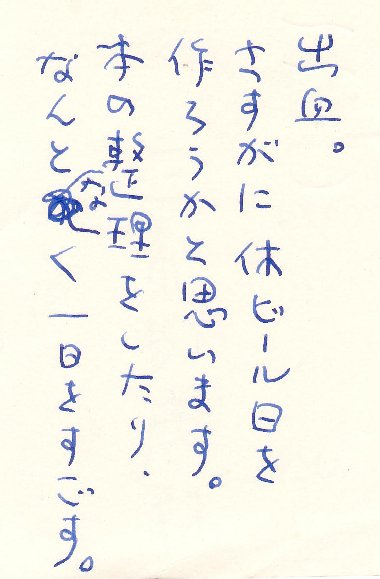 出血。
さすがに休ビール日を
作ろうかと思います。
本の整理をしたり、
なんとなく一日をすごす。